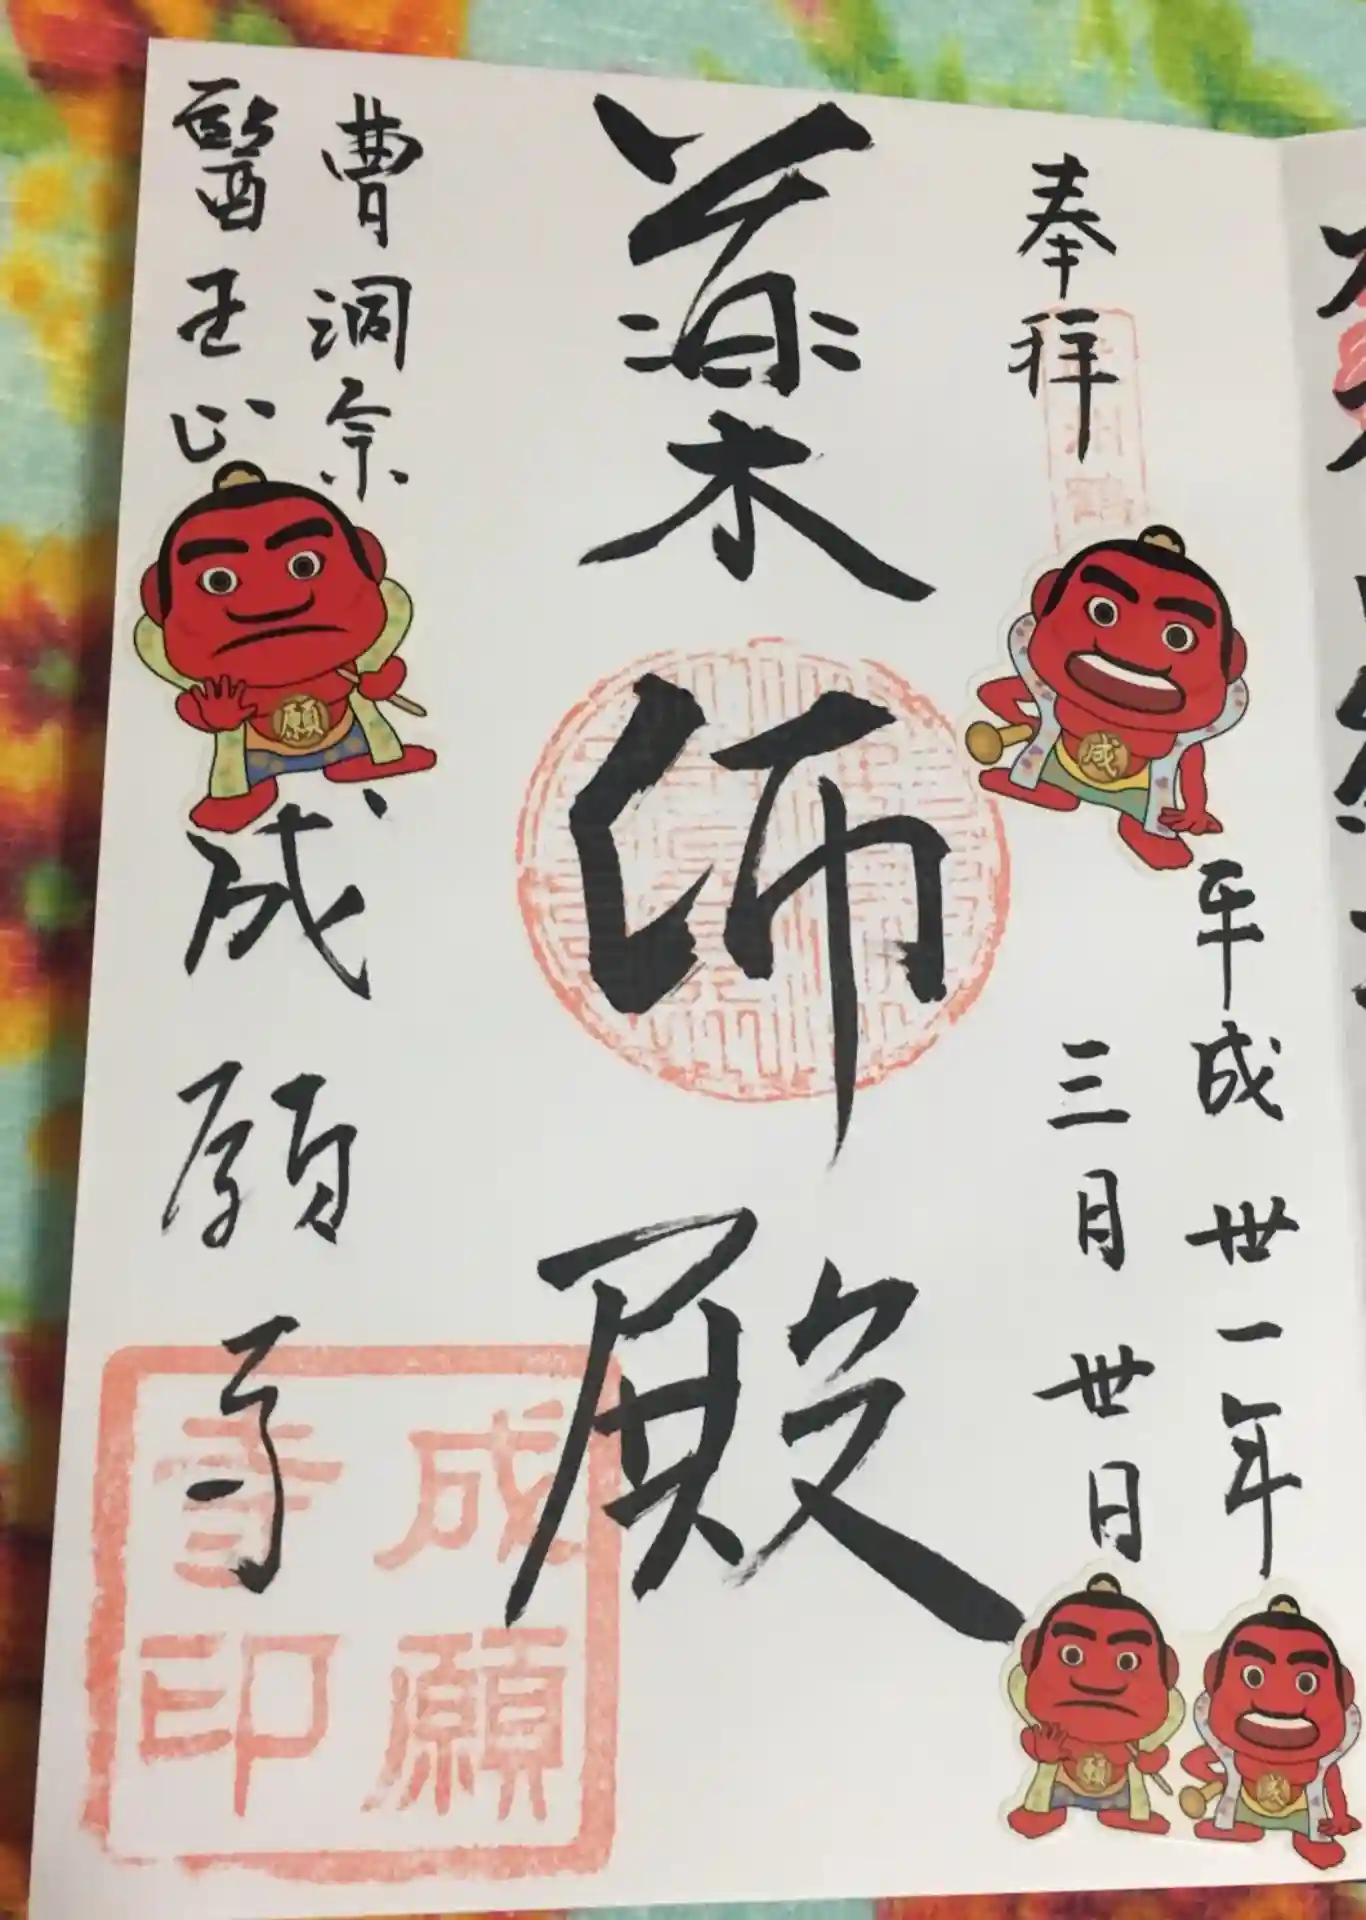 奉拝
平成丗一年
三月丗日
薬師殿
曹洞宗
醫王山
成願寺
成願
寺印
成
願
願
成